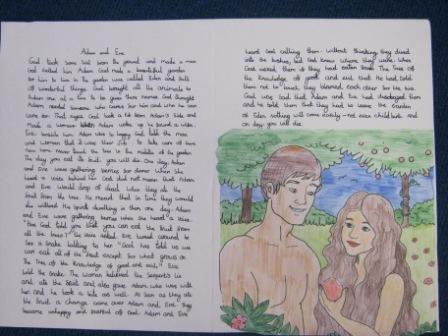 Adam and Eve
God took some soil from the ground and made a man
God called him Adam. God made a beautiful garden
for him to live in. The garden was called Eden and full
of wonderful things. God brought all the animals to
Adam one at a time to be given there names. God thought
Adam needed someone who cares for him and who he can
care for. That night God took a rib from Adam's side and
Made a woman. When Adam woke up he found a wife.
Eve beside him. Adam was so happy. God told the man
and woman that it was their job to take care of their
new home. Never touch the tree in the middle of the garden
The day you eat its fruit you will die. One day, Adam
and Eve were gathering berries for dinner when she
heard a voice behind her. God did not mean that Adam
and Eve would drop of dead when they ate the
fruit from the tree. He meant that in time they would
die without the Spirit dwelling in them one day Adam
and Eve were gathering berries when she heard a voice.
"Has God told you that you can eat the fruit from
all the trees?" the voice asked. Eve turned around to
see a snake talking to her "God has told us we
can eat all of the fruit except for what grows on
The Tree of the Knowledge of good and evil." Eve
told the snake. The woman believed the Serpent's lie
and ate the fruit and also gave Adam who was with
her and he took a bite as well. As soon as they ate
the fruit a change came over Adam and Eve. They
became unhappy and fearful of God. Adam and Eve
heard God calling them. without thinking they dived
into the bushes, but God knew where they were. When
God asked them if they had eaten from The Tree of
the Knowledge of good and evil that he had told
them not to touch, they blamed each other for the sin.
God was sad that Adam and Eve had disobeyed them
and he told them that they had to leave the Garden
of Eden nothing will come easily - not even childbirth and
one day you will die.